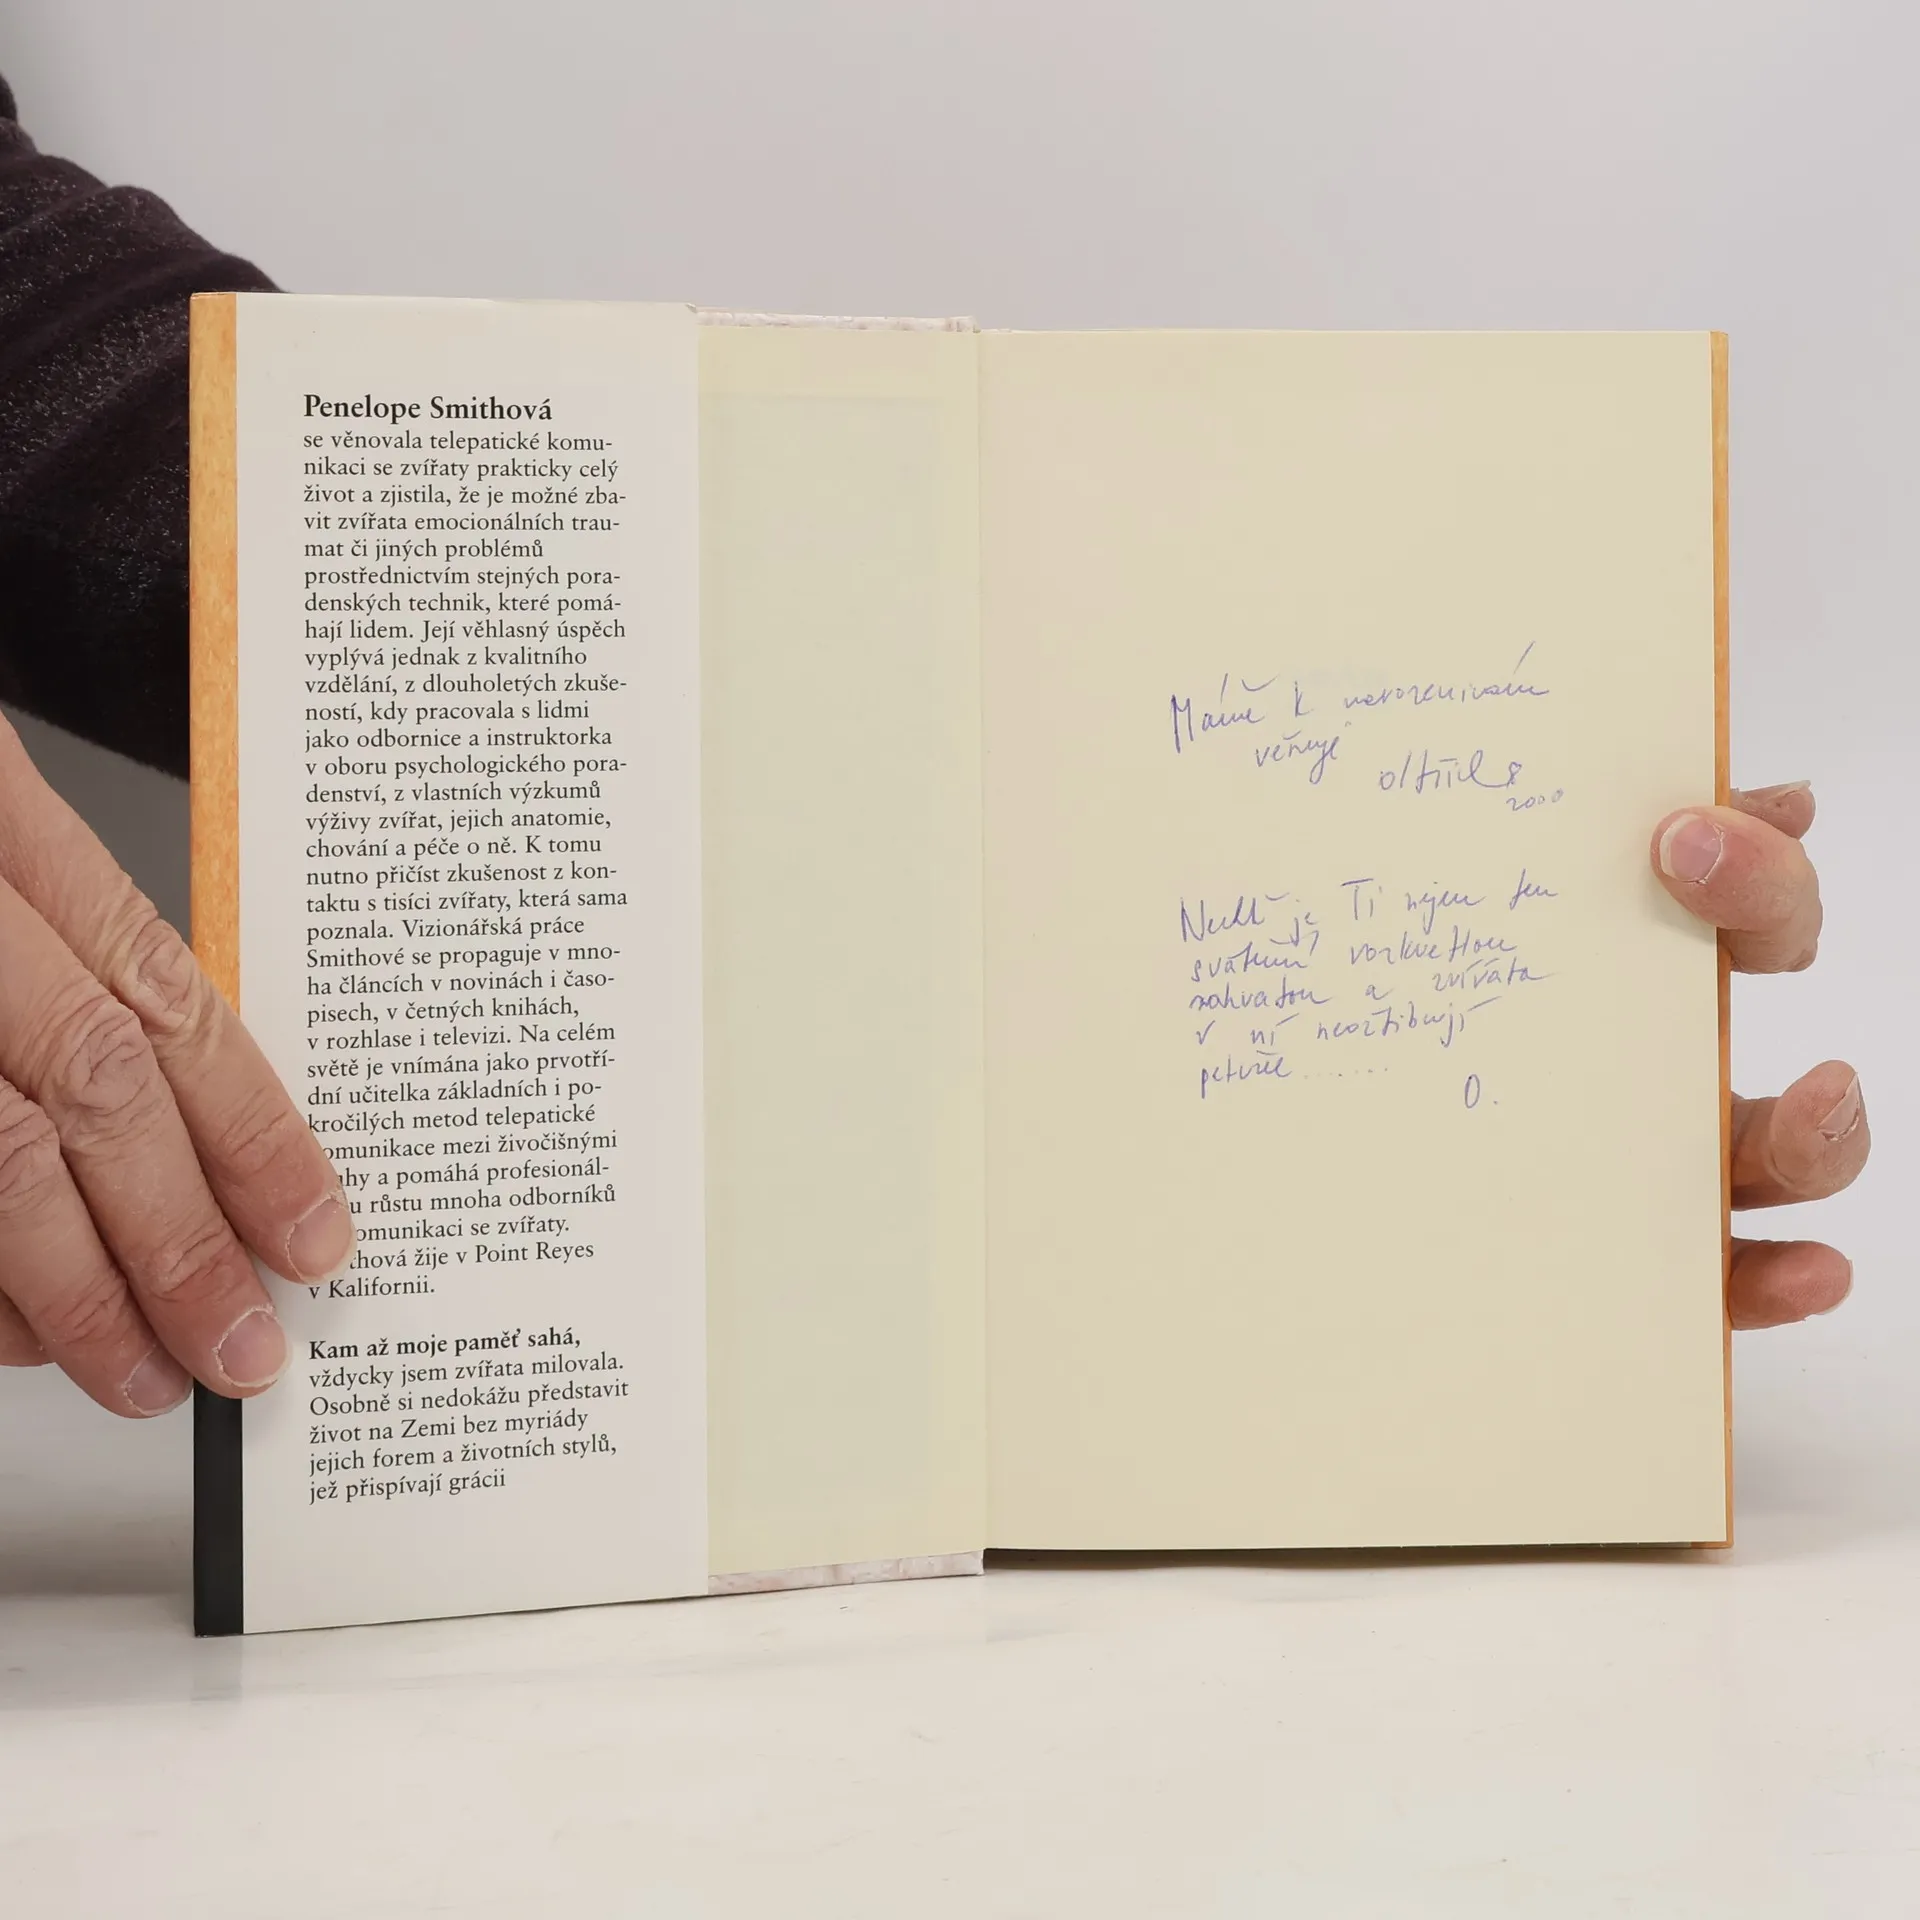 Penelope Smithová
se věnovala telepatické komu-
nikaci se zvířaty prakticky celý
život a zjistila, že je možné zba-
vit zvířata emocionálních trau-
mat či jiných problémů
prostřednictvím stejných pora-
denských technik, které pomá-
hají lidem. Její věhlasný úspěch
vyplývá jednak z kvalitního
vzdělání, z dlouholetých zkuše-
ností, kdy pracovala s lidmi
jako odbornice a instruktorka
v oboru psychologického pora-
denství, z vlastních výzkumů
výživy zvířat, jejich anatomie,
chování a péče o ně. K tomu
nutno přičíst zkušenost z kon-
taktu s tisíci zvířaty, která sama
poznala. Vizionářská práce
Smithové se propaguje v mno-
ha článcích v novinách i časo-
pisech, v četných knihách,
v rozhlase i televizi. Na celém
světě je vnímána jako prvotří-
dní učitelka základních i po-
kročilých metod telepatické
omunikace mezi živočišnými
hy a pomáhá profesionál-
u růstu mnoha odborníků
omunikaci se zvířaty.
thová žije v Point Reyes
v Kalifornii.
Kam až moje paměť sahá,
vždycky jsem zvířata milovala.
Osobně si nedokážu představit
život na Zemi bez myriády
jejich forem a životních stylů,
jež přispívají grácii
Mámě k narozeninám
věnuje
2000
Nechť je Ti nejen ten
rozkvetlou
zahradou a zvířata
v ní neozřibují
O.